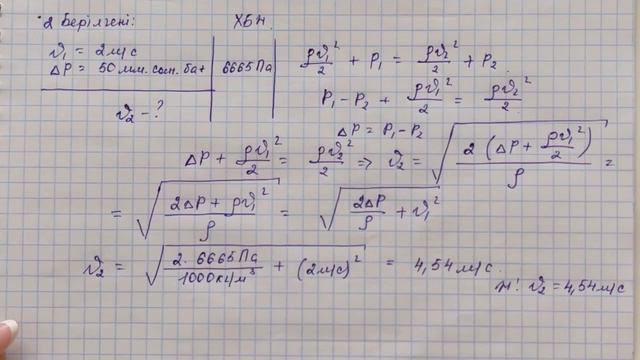 2 берілгені: ХБЖ.
v₁ = 2м/с
ΔP = 50 мм. сын. бағ 6665 Па
v₂ - ?
ρv₁²/2 + P₁ = ρv₂²/2 + P₂
P₁ - P₂ + ρv₁²/2 = ρv₂²/2
ΔP = P₁ - P₂
ΔP + ρv₁²/2 = ρv₂²/2 => v₂ = √(2(ΔP + ρv₁²/2)/ρ) =
= √((2ΔP + ρv₁²)/ρ) = √(2ΔP/ρ + v₁²)
v₂ = √(2·6665Па/1000кг/м³ + (2м/с)²) = 4,54 м/с.
Ж! v₂ = 4,54м/с